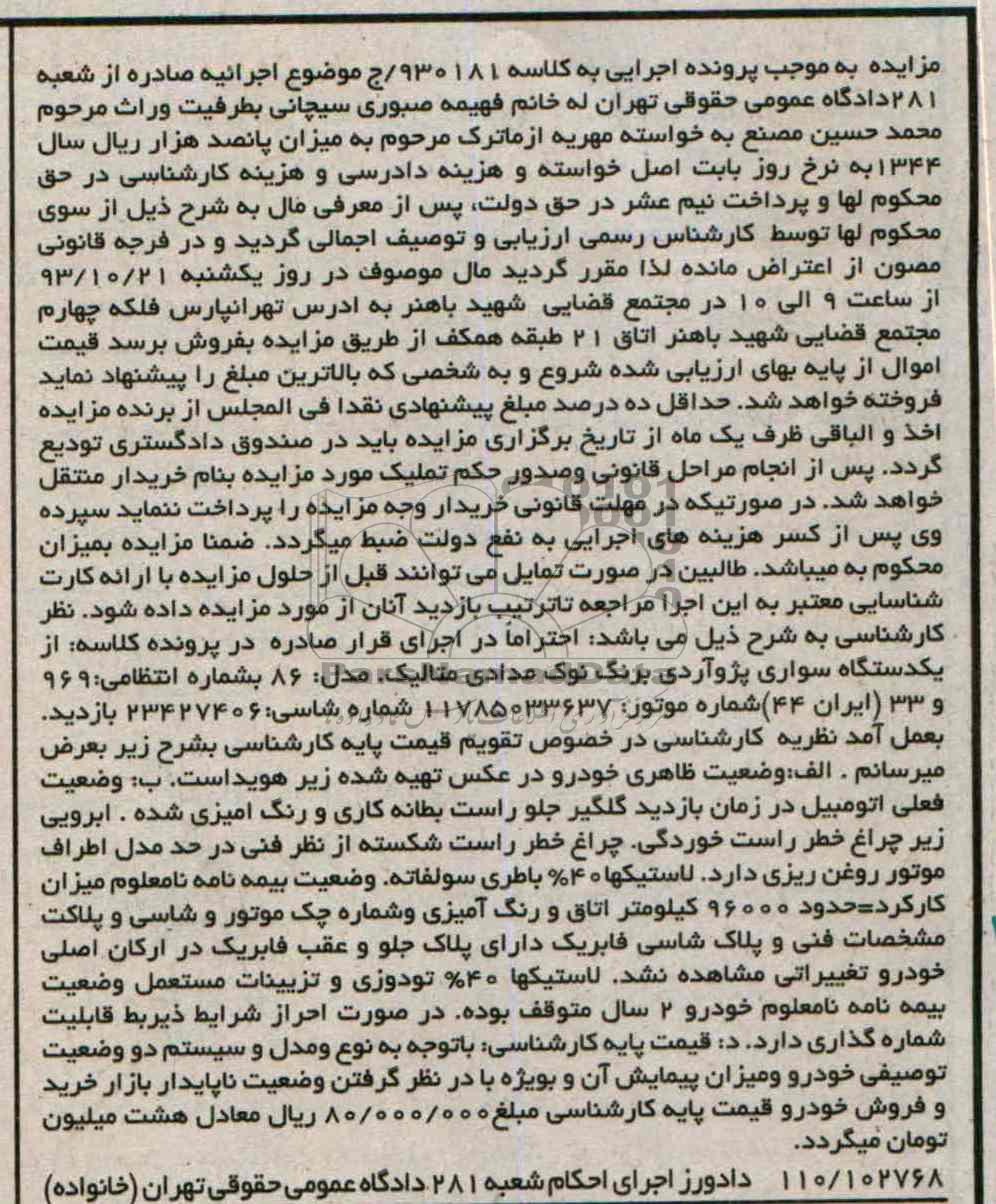 مزایده به موجب پرونده اجرایی به کلاسه ۹۳۰۱۸۱/ج موضوع اجرائیه صادره از شعبه
۲۸۱دادگاه عمومی حقوقی تهران له خانم فهیمه صبوری سیچانی بطرفیت وراث مرحوم
محمد حسین مصنع به خواسته مهریه ازماترک مرحوم به میزان پانصد هزار ریال سال
۱۳۴۴به نرخ روز بابت اصل خواسته و هزینه دادرسی و هزینه کارشناسی در حق
محکوم لها و پرداخت نیم عشر در حق دولت، پس از معرفی مال به شرح ذیل از سوی
محکوم لها توسط کارشناس رسمی ارزیابی و توصیف اجمالی گردید و در فرجه قانونی
مصون از اعتراض مانده لذا مقرر گردید مال موصوف در روز یکشنبه ۹۳/۱۰/۲۱
از ساعت ۹ الی ۱۰ در مجتمع قضایی شهید باهنر به ادرس تهرانپارس فلکه چهارم
مجتمع قضایی شهید باهنر اتاق ۲۱ طبقه همکف از طریق مزایده بفروش برسد قیمت
اموال از پایه بهای ارزیابی شده شروع و به شخصی که بالاترین مبلغ را پیشنهاد نماید
فروخته خواهد شد. حداقل ده درصد مبلغ پیشنهادی نقدا فی المجلس از برنده مزایده
اخذ و الباقی ظرف یک ماه از تاریخ برگزاری مزایده باید در صندوق دادگستری تودیع
گردد. پس از انجام مراحل قانونی وصدور حکم تملیک مورد مزایده بنام خریدار منتقل
خواهد شد. در صورتیکه در مهلت قانونی خریدار وجه مزایده را پرداخت ننماید سپرده
وی پس از کسر هزینه های اجرایی به نفع دولت ضبط میگردد. ضمنا مزایده بمیزان
محکوم به میباشد. طالبین در صورت تمایل می توانند قبل از حلول مزایده با ارائه کارت
شناسایی معتبر به این اجرا مراجعه تاترتیب بازدید آنان از مورد مزایده داده شود. نظر
کارشناسی به شرح ذیل می باشد: احتراماً در اجرای قرار صادره در پرونده کلاسه: از
یکدستگاه سواری پژوآردی برنگ نوک مدادی متالیک. مدل: ۸۶ بشماره انتظامی:۹۶۹
و ۳۳ (ایران ۴۴)شماره موتور: ۱۱۷۸۵۰۳۳۶۳۷ شماره شاسی:۲۳۴۲۷۴۰۶ بازدید.
بعمل آمد نظریه کارشناسی در خصوص تقویم قیمت پایه کارشناسی بشرح زیر بعرض
میرسانم . الف:وضعیت ظاهری خودرو در عکس تهیه شده زیر هویداست. ب: وضعیت
فعلی اتومبیل در زمان بازدید گلگیر جلو راست بطانه کاری و رنگ امیزی شده . ابرویی
زیر چراغ خطر راست خوردگی. چراغ خطر راست شکسته از نظر فنی در حد مدل اطراف
موتور روغن ریزی دارد. لاستیکها۴۰% باطری سولفاته. وضعیت بیمه نامه نامعلوم میزان
کارکرد=حدود ۹۶۰۰۰ کیلومتر اتاق و رنگ آمیزی وشماره چک موتور و شاسی و پلاکت
مشخصات فنی و پلاک شاسی فابریک دارای پلاک جلو و عقب فابریک در ارکان اصلی
خودرو تغییراتی مشاهده نشد. لاستیکها ۴۰% تودوزی و تزیینات مستعمل وضعیت
بیمه نامه نامعلوم خودرو ۲ سال متوقف بوده. در صورت احراز شرایط ذیربط قابلیت
شماره گذاری دارد. د: قیمت پایه کارشناسی: باتوجه به نوع ومدل و سیستم دو وضعیت
توصیفی خودرو ومیزان پیمایش آن و بویژه با در نظر گرفتن وضعیت ناپایدار بازار خرید
و فروش خودرو قیمت پایه کارشناسی مبلغ۸۰/۰۰۰/۰۰۰ ریال معادل هشت میلیون
تومان میگردد.
۱۱۰/۱۰۲۷۶۸ دادورز اجرای احکام شعبه ۲۸۱ دادگاه عمومی حقوقی تهران (خانواده)